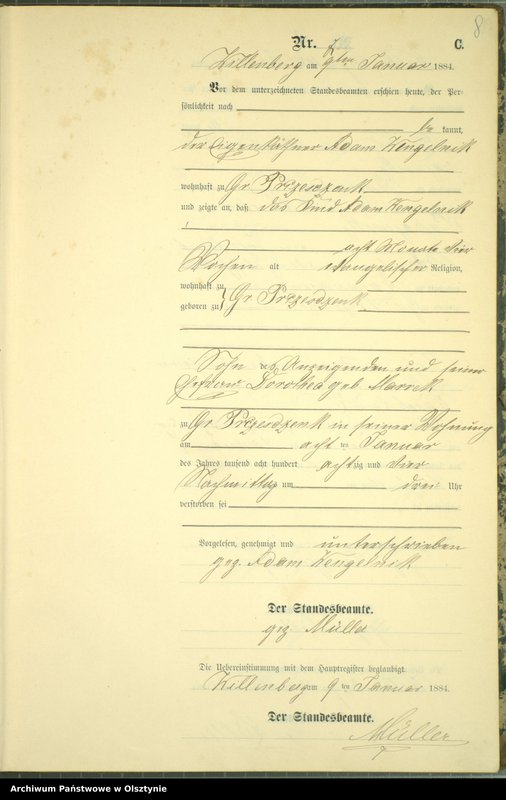 8
Nr. 7 C.
Willenberg am 9ten Januar 1884.
Vor dem unterzeichneten Standesbeamten erschien heute, der Per-
sönlichkeit nach
be kannt,
der Eigenkäthner Adam Kengelnik
wohnhaft zu Gr Przesdzenk
und zeigte an, daß das Kind Adam Kengelnik
acht Monate vier
Wochen alt evangelischer Religion,
wohnhaft zu
geboren zu Gr Przesdzenk
Sohn des Anzeigenden und seiner
Ehefrau Dorothea geb
zu Gr Przesdzenk in seiner Wohnung
am acht ten Januar
des Jahres tausend acht hundert achtzig und vier
Nachmittags um drei Uhr
verstorben sei
Vorgelesen, genehmigt und unterschrieben
gez. Adam Kengelnik
Der Standesbeamte.
gez Müller
Die Uebereinstimmung mit dem Hauptregister beglaubigt.
Willenberg am 9 ten Januar 1884.
Der Standesbeamte.
Müller
Archiwum Państwowe w Olsztynie